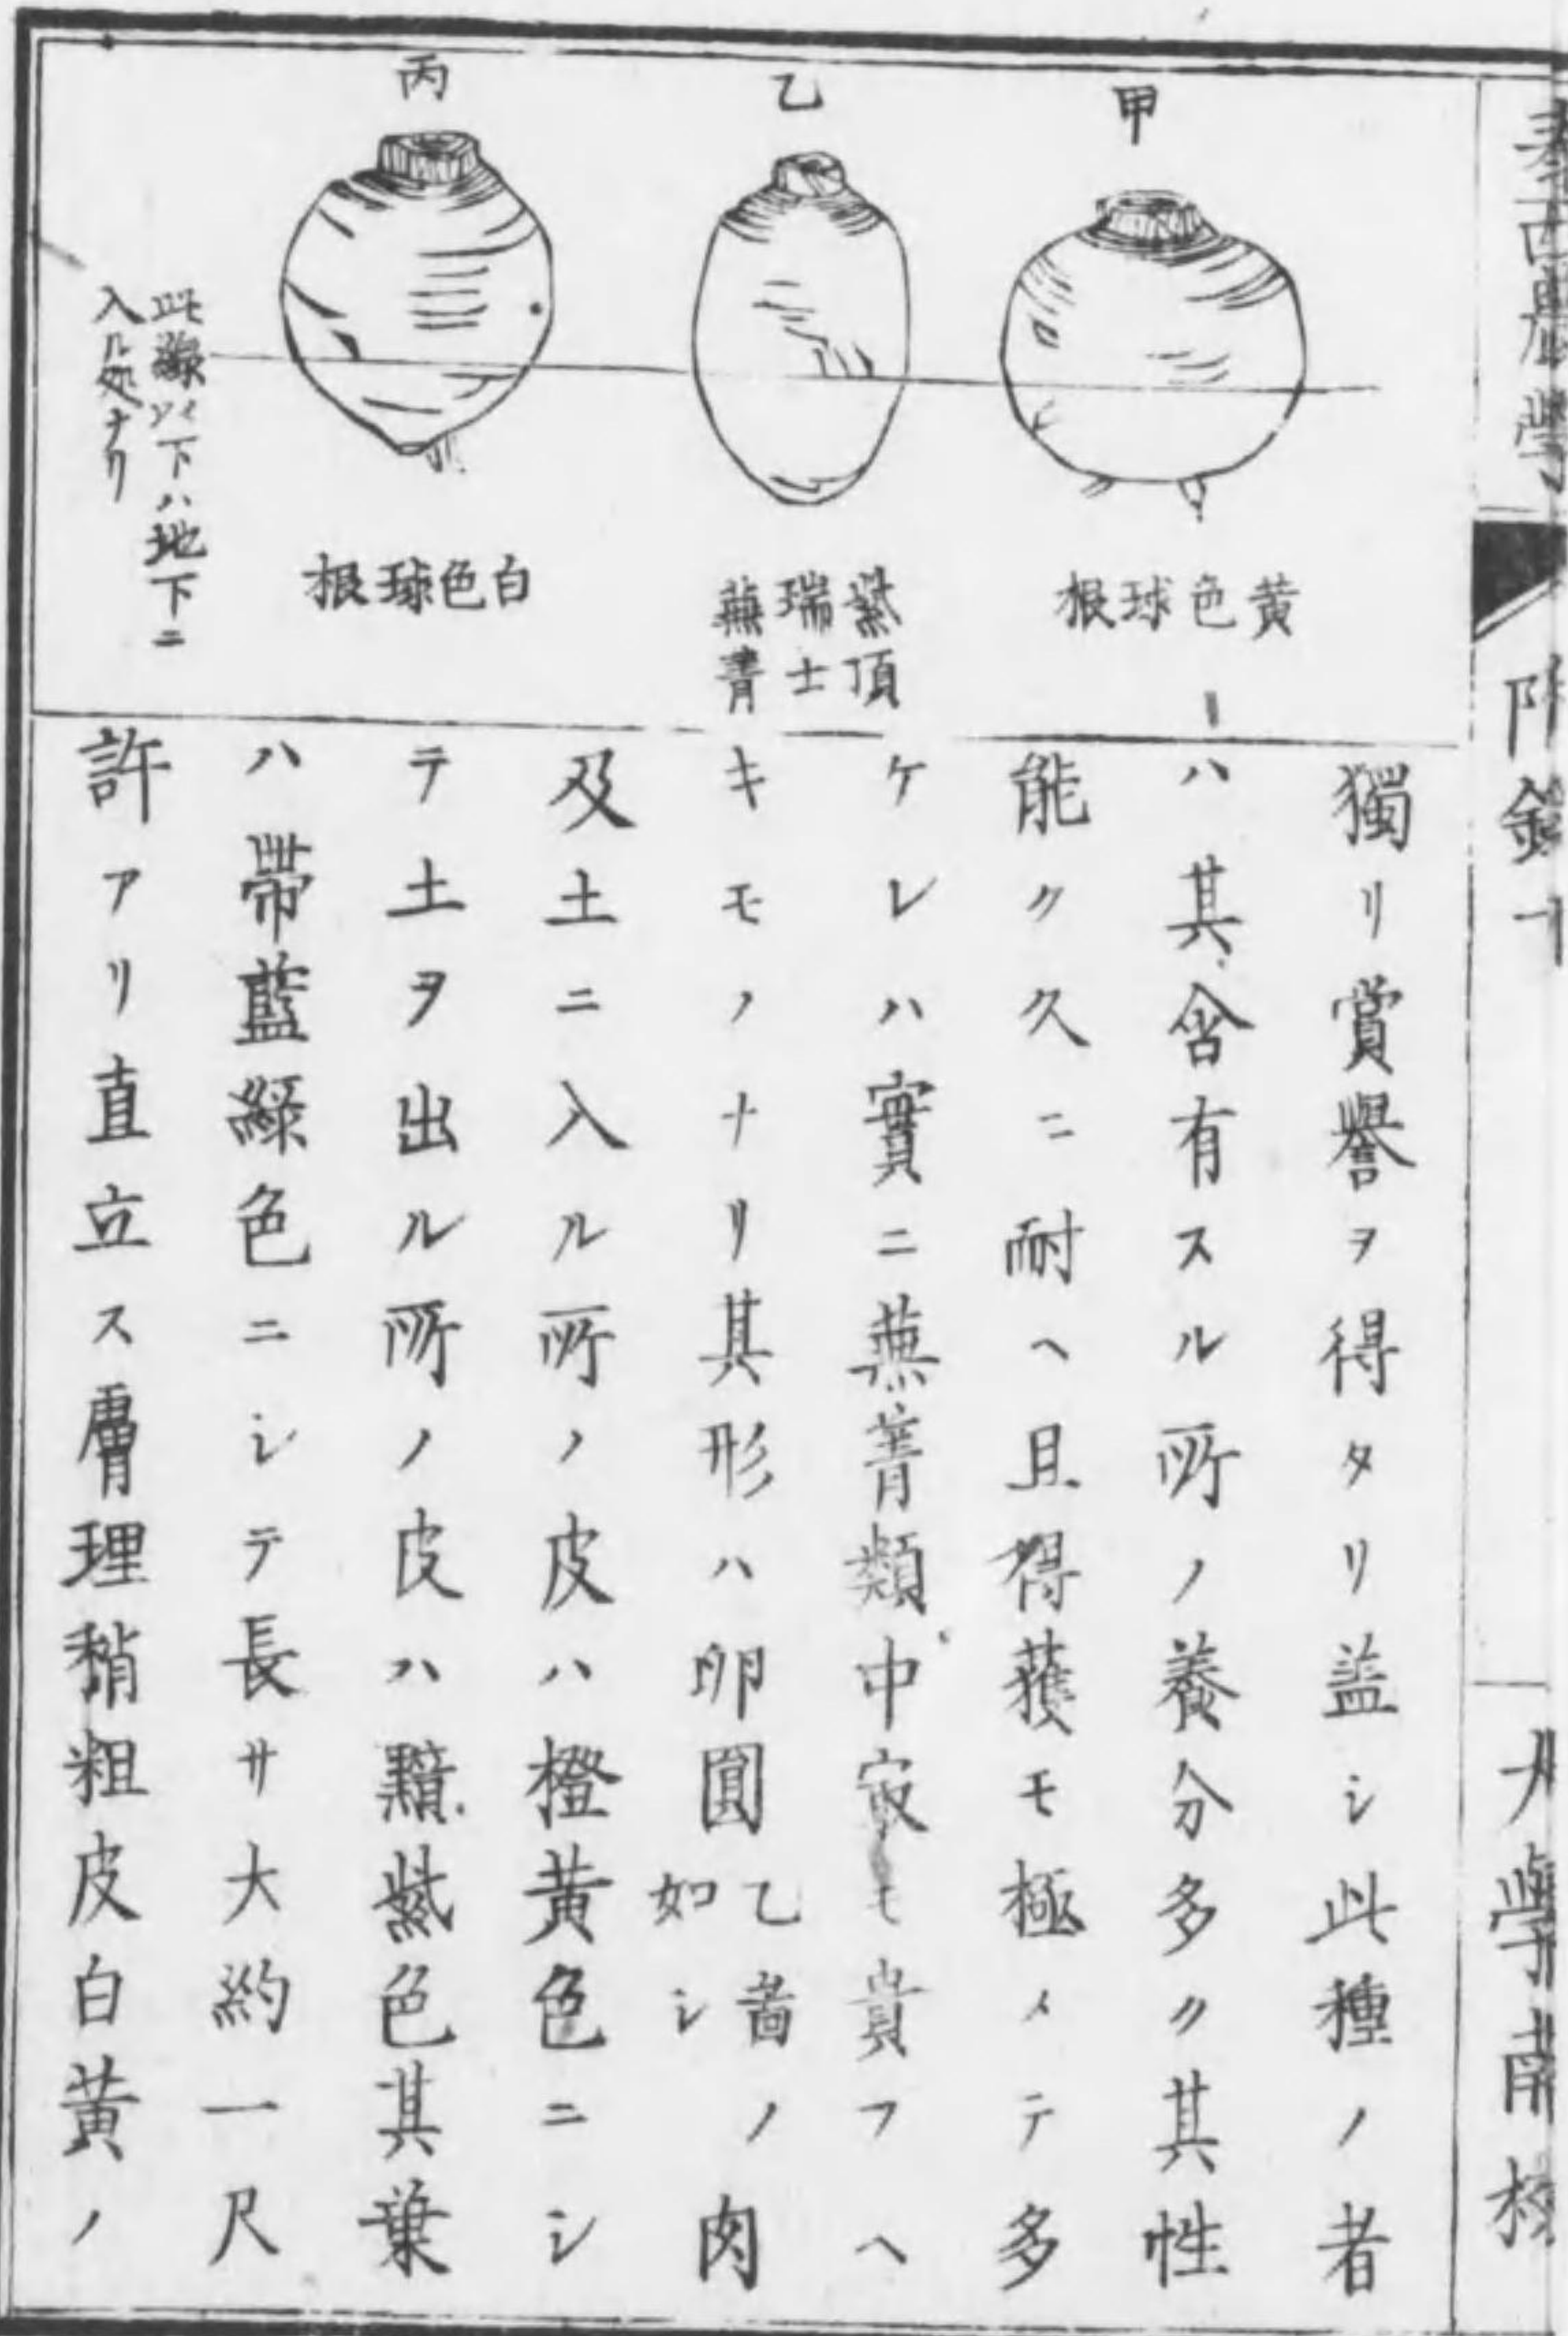 泰西農學
附錄
大學南校
甲
黄色球根
乙
紫頂
瑞士
蕪菁
丙
白色球根
此線ヨリ下ハ地下ニ
入ル処ナリ
獨リ賞譽ヲ得タリ盖シ此種ノ者
ハ其含有スル所ノ養分多ク其性
能ク久ニ耐ヘ且得穫モ極メテ多
ケレハ實ニ蕪菁類中㝡モ貴フヘ
キモノナリ其形ハ卵圓乙啚ノ如シ肉
及土ニ入ル所ノ皮ハ橙黄色ニシ
テ土ヲ出ル所ノ皮ハ黯紫色其葉
ハ帶藍綠色ニシテ長サ大約一尺
許アリ直立ス膚理稍粗皮白黄ノ